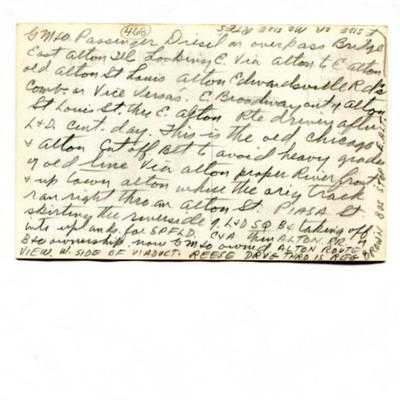 E SIDE OR MO SIDE RTES
(460)
GM&O Passenger Diesel on overpass Bridge
East Alton Ill Looking E Via Alton to E Alton
old Alton St Louis Alton Edwardsville Rd.
Comb. or Vice Versa's. E Broadway out of Alton
St Louis St. thru E. Alton Rte driven after
L&D. Cent. day. This is the old Chicago
& Alton Cut off Blt to avoid heavy grades
of old line Via Alton proper River front
& up town Alton where the orig track
ran right thro an Alton St. PIASA St
skirting the riverside of L&D SQ B& taking off
into up ands for SPFLD. C&A then ALTON RR
B&O ownership now GM&O owned ALTON ROUTE
VIEW. W. SIDE OF VIADUCT. REESE DRUG THRO IS REG